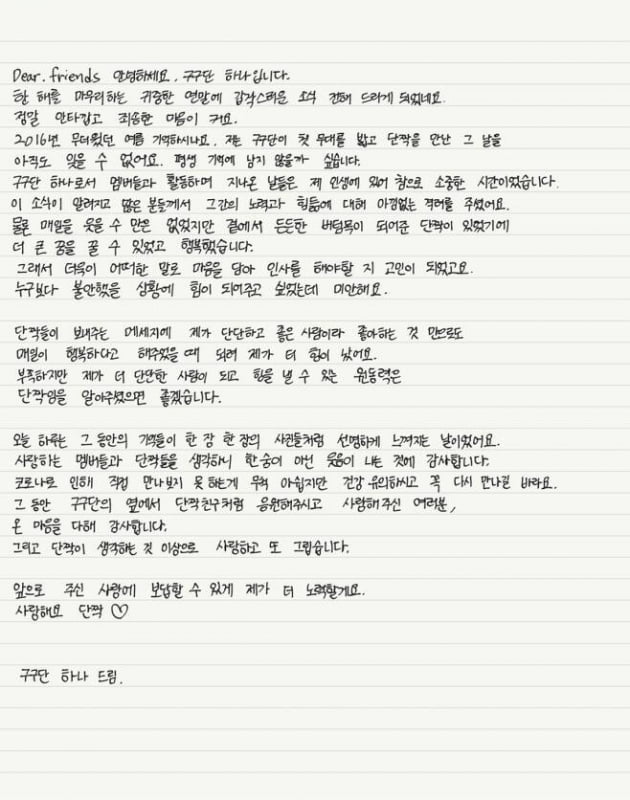 Dear. friends 안녕하세요. 구구단 하나입니다.
한 해를 마무리하는 귀중한 연말에 갑작스러운 소식 전해 드리게 되었네요.
정말 안타깝고 죄송한 마음이 커요.
2016년 무더웠던 여름 기억하시나요. 저는 구구단이 첫 무대를 밟고 단짝을 만난 그 날을
아직도 잊을 수 없어요. 평생 기억에 남지 않을까 싶습니다.
구구단 하나로서 멤버들과 활동하며 지나온 날들은 제 인생에 있어 참으로 소중한 시간이었습니다.
이 소식이 알려지고 많은 분들께서 그간의 노력과 힘듦에 대해 아낌없는 격려를 주셨어요.
물론 매일을 웃을 수 만은 없었지만 곁에서 든든한 버팀목이 되어준 단짝이 있었기에
더 큰 꿈을 꿀 수 있었고 행복했습니다.
그래서 더욱이 어떠한 말로 마음을 담아 인사를 해야할 지 고민이 되었고요.
누구보다 불안했을 상황에 힘이 되어주고 싶었는데 미안해요.
단짝들이 보내주는 메세지에 제가 단단하고 좋은 사람이라 좋아하는 것 만으로도
매일이 행복하다고 해주었을 때 되려 제가 더 힘이 났어요.
부족하지만 제가 더 단단한 사람이 되고 힘을 낼 수 있는 원동력은
단짝임을 알아주셨으면 좋겠습니다.
오늘 하루는 그 동안의 기억들이 한 장 한 장의 사진들처럼 선명하게 느껴지는 날이었어요.
사랑하는 멤버들과 단짝들을 생각하니 한숨이 아닌 웃음이 나는 것에 감사합니다.
코로나로 인해 직접 만나보지 못하는게 무척 아쉽지만 건강 유의하시고 꼭 다시 만나길 바라요.
그 동안 구구단의 옆에서 단짝친구처럼 응원해주시고 사랑해주신 여러분,
온 마음을 다해 감사합니다.
그리고 단짝이 생각하는 것 이상으로 사랑하고 또 그립습니다.
앞으로 주신 사랑에 보답할 수 있게 제가 더 노력할게요.
사랑해요 단짝 ♡
구구단 하나 드림.